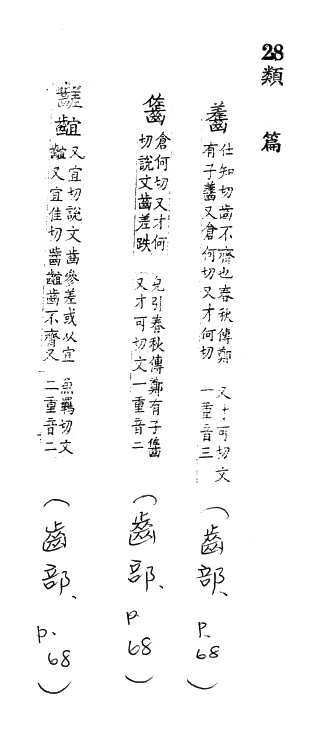 28
類篇
仕知切齒不齊也春秋傳鄭
有子𪘓又倉何切又才何切
又才可切文
一重音三
(齒部、P.68)
倉何切又才何
切說文齒差跌
皃引春秋傳鄭有子
又才可切文一重音二
(齒部、P.68)
又宜切說文齒參差或从宜
又宜佳切齒不齊又
魚羈切文
二重音二
(齒部、p.68)